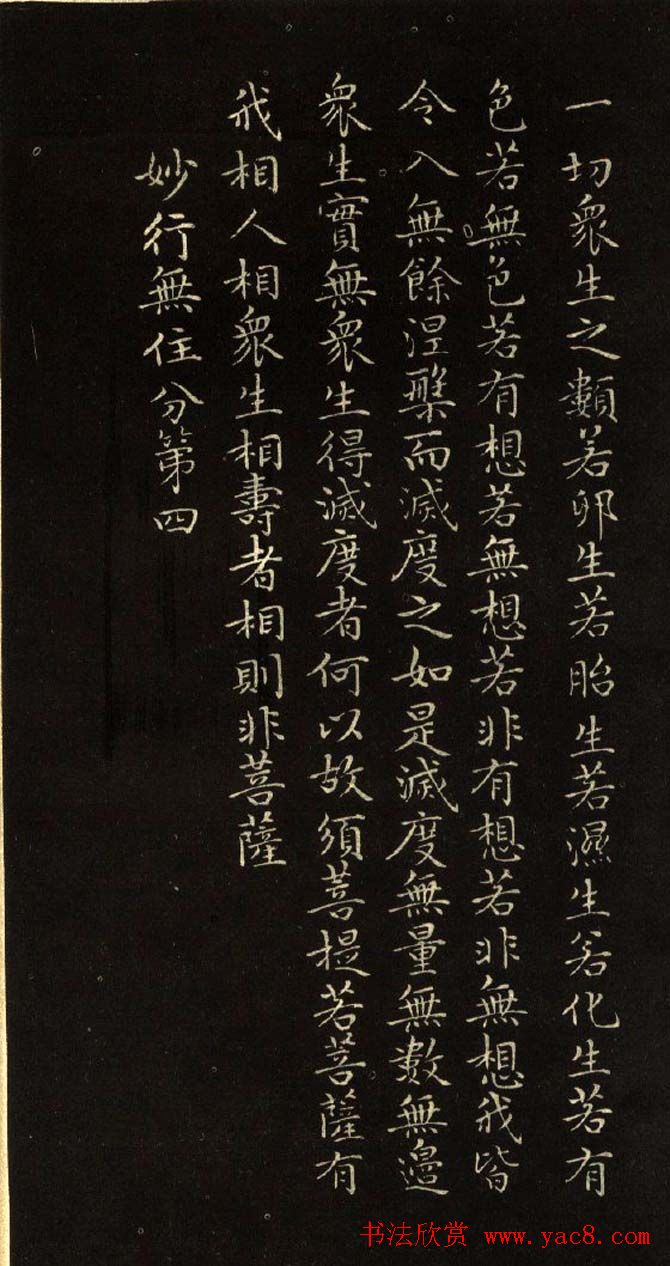 一切衆生之類若卵生若胎生若濕生若化生若有
色若無色若有想若無想若非有想若非無想我皆
令入無餘涅槃而滅度之如是滅度無量無數無邊
衆生實無衆生得滅度者何以故須菩提若菩薩有
我相人相衆生相壽者相則非菩薩
妙行無住分第四
书法欣赏 www.yac8.com